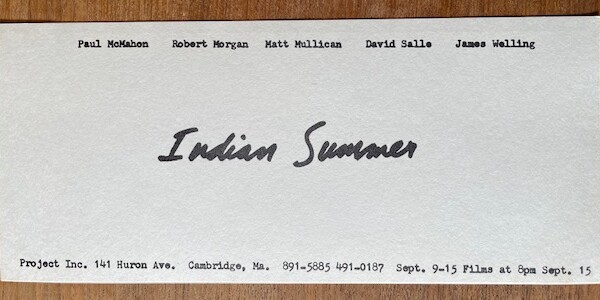 Paul McMahon Robert Morgan Matt Mullican David Salle James Welling
Indian Summer
Project Inc. 141 Huron Ave. Cambridge, Ma. 891-5885 491-0187 Sept. 9-15 Films at 8pm Sept. 15